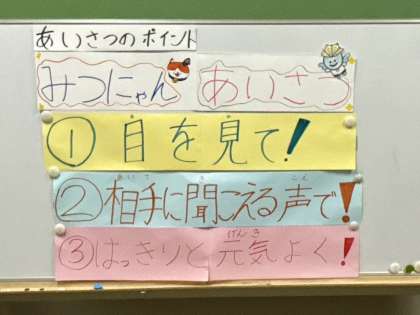 あいさつのポイント
みつにゃん あいさつ
①目を見て!
②相手に聞こえる声で!
③はっきりと元気よく!